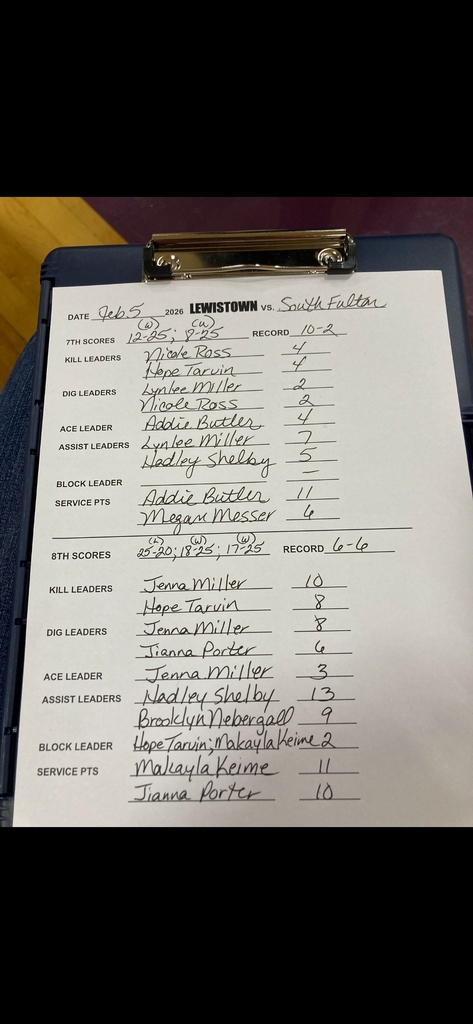 DATE Feb. 5 2026 LEWISTOWN VS. South Fulton
(W) (W)
7TH SCORES 12-25; 8-25 RECORD 10-2
KILL LEADERS Nicole Ross 4
Hope Tarvin 4
DIG LEADERS Lynlee Miller 2
Nicole Ross 2
ACE LEADER Addie Butler 4
ASSIST LEADERS Lynlee Miller 7
Hadley Shelby 5
BLOCK LEADER –
SERVICE PTS Addie Butler 11
Megan Messer 6
(L) (W) (W)
8TH SCORES 25-20; 18-25; 17-25 RECORD 6-6
KILL LEADERS Jenna Miller 10
Hope Tarvin 8
DIG LEADERS Jenna Miller 8
Jianna Porter 6
ACE LEADER Jenna Miller 3
ASSIST LEADERS Hadley Shelby 13
Brooklyn Nebergall 9
BLOCK LEADER Hope Tarvin; Makayla Keime 2
SERVICE PTS Makayla Keime 11
Jianna Porter 10